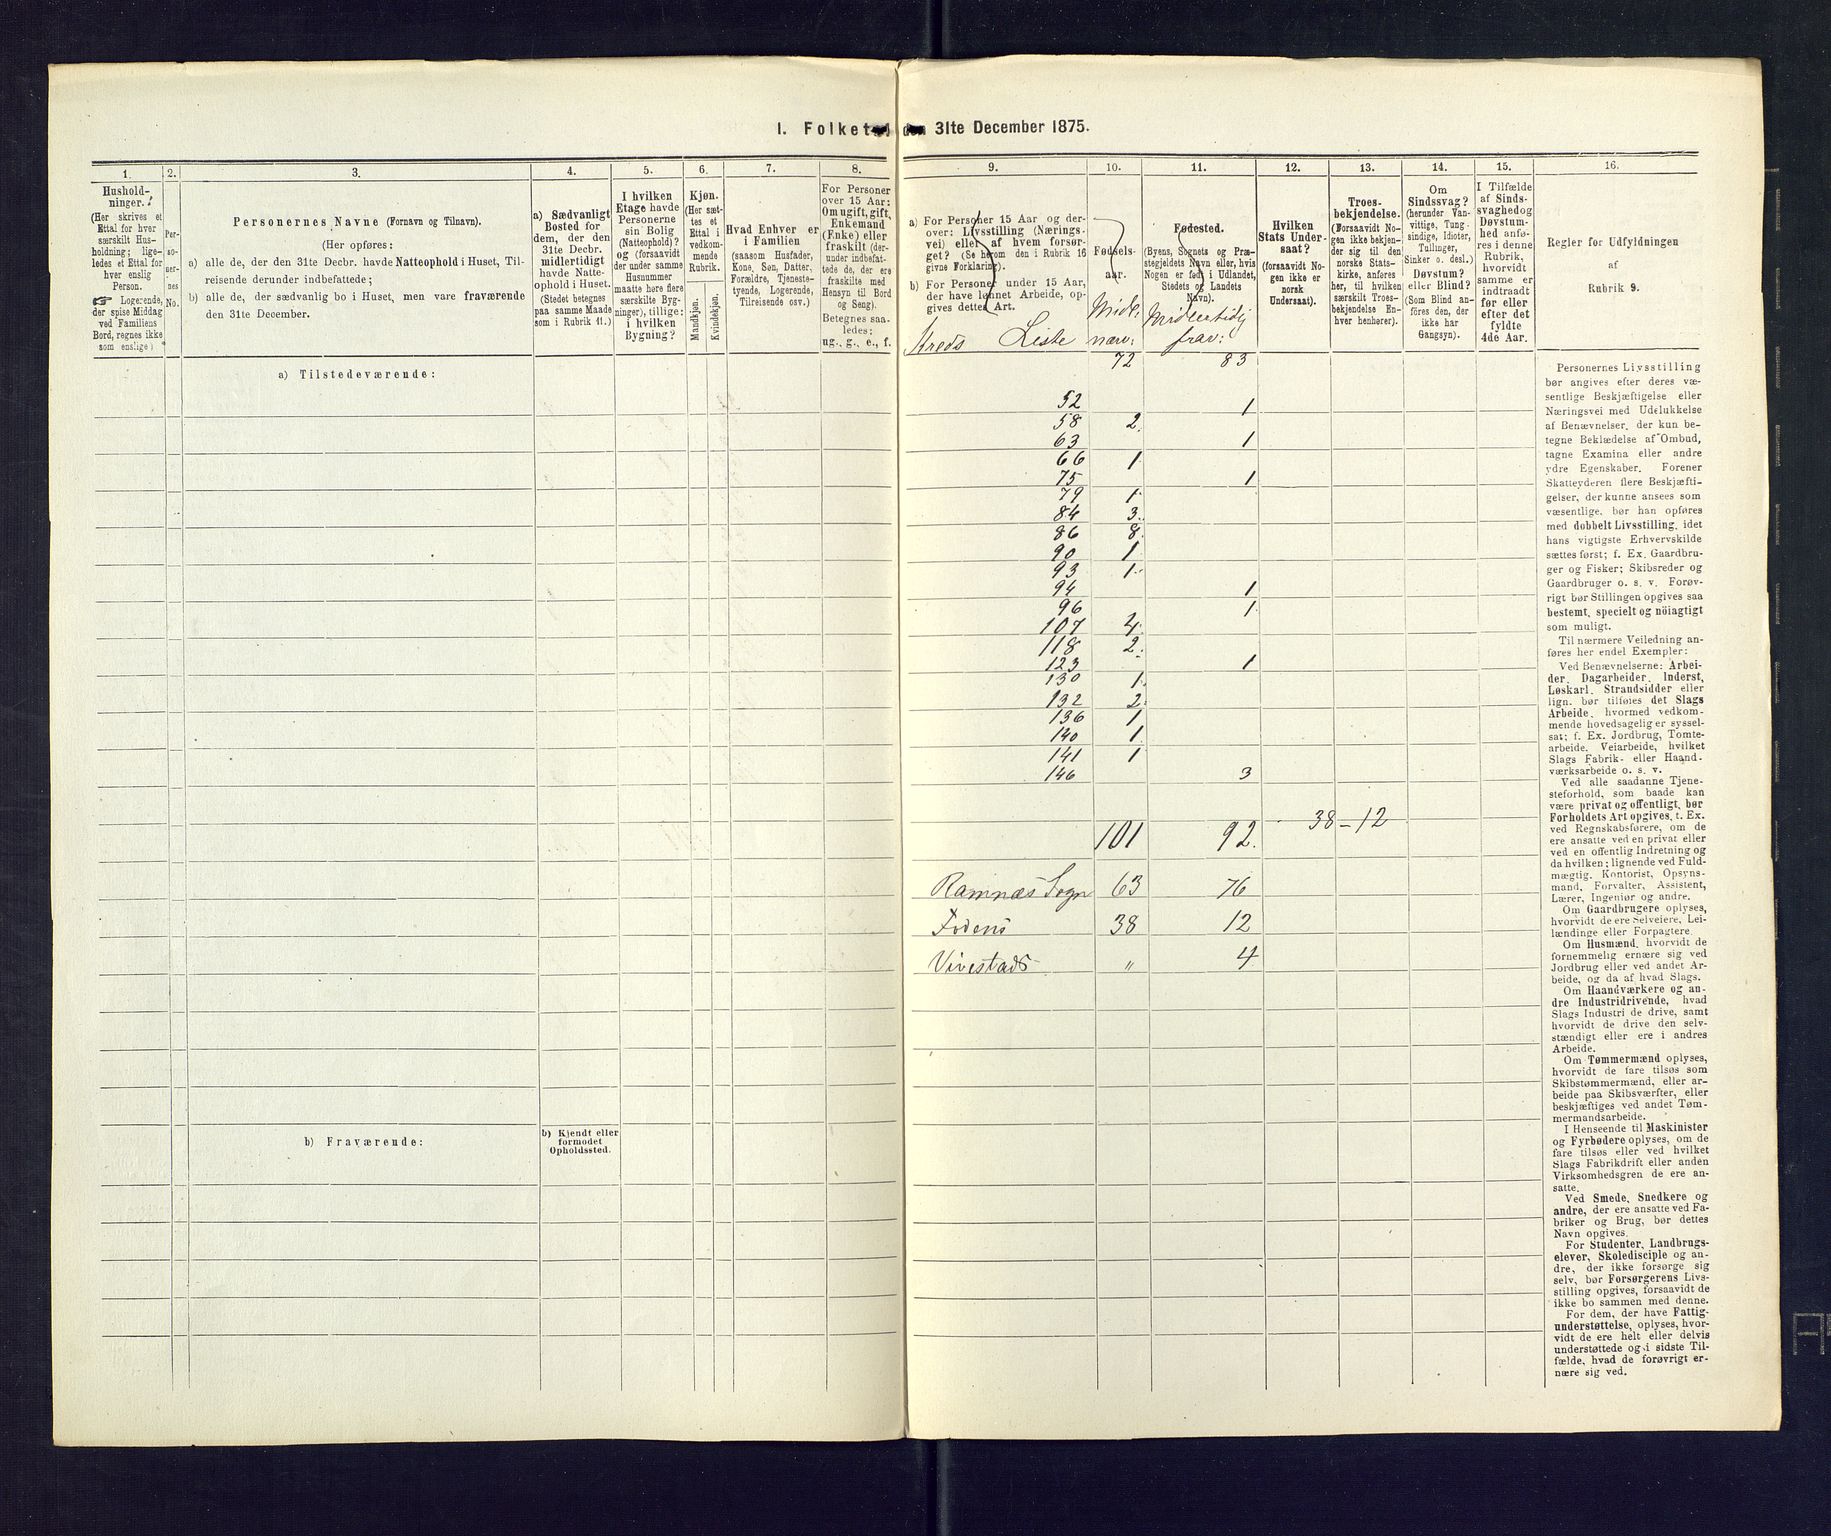 I. Folket den 31te December 1875.
1.
2.
3.
4.
5.
6.
7.
8.
9.
10.
11.
12.
13.
14.
15.
16.
Hushold-
ninger.
(Her skrives et
Ettal for hver
særskilt Hus-
holdning; lige-
ledes et Ettal for
hver enslig
Person.
☞ Logerende,
der spise Middag
ved Familiens
Bord, regnes ikke
som enslige)
Per-
so-
ner-
nes
No.
Personernes Navne (Fornavn og Tilnavn).
(Her opføres:
a) alle de, der den 31te Decbr. havde Natteophold i Huset, Til-
reisende derunder indbefattede;
b) alle de, der sædvanlig bo i Huset, men vare fraværende
den 31te December.
a) Sædvanligt
Bosted for
dem, der den
31te Decbr.
midlertidigt
havde Natte-
ophold i Huset.
(Stedet betegnes
paa samme Maade
som i Rubrik 11.)
I hvilken
Etage havde
Personerne
sin Bolig
(Natteophold)?
og (forsaavidt
der under samme
Husnummer
maatte høre flere
særskilte Byg-
ninger), tillige:
i hvilken
Bygning?
Kjøn.
(Her sæt-
tes et
Ettal i
vedkom-
mende
Rubrik.
Mandkjøn.
Kvindekjøn.
Hvad Enhver er
i Familien
(saasom Husfader,
Kone, Søn, Datter,
Forældre, Tjeneste-
tyende, Logerende,
Tilreisende osv.)
For Personer
over 15 Aar:
Om ugift, gift,
Enkemand
(Enke) eller
fraskilt (der-
under indbefat-
tede de, der ere
fraskilte med
Hensyn til Bord
og Seng).
Betegnes saa-
ledes:
ug., g., e., f.
a) For Personer 15 Aar og der-
over: Livsstilling (Nærings-
vei) eller af hvem forsør-
get? (Se herom den i Rubrik 16
givne Forklaring).
b) For Personer under 15 Aar,
der have lønnet Arbeide, op-
gives dettes Art.
Fødsels-
aar.
Fødested.
(Byens, Sognets og Præ-
stegjeldets Navn eller, hvis
Nogen er født i Udlandet,
Stedets og Landets
Navn).
Hvilken
Stats Under-
saat?
(forsaavidt No-
gen ikke er
norsk
Undersaat).
Troes-
bekjendelse.
(Forsaavidt No-
gen ikke bekjen-
der sig til den
norske Stats-
kirke, anføres
her, til hvilken
særskilt Troes-
bekjendelse En-
hver henhører).
Om
Sindssvag?
(herunder Van-
vittige, Tung-
sindige, Idioter,
Tullinger,
Sinker o. desl.)
Døvstum?
eller Blind?
(Som Blind an-
føres den, der
ikke har
Gangsyn).
I Tilfælde
af Sinds-
svaghed og
Døvstum-
hed anfø-
res i denne
Rubrik,
hvorvidt
samme er
indtraadt
før eller
efter det
fyldte
4de Aar.
Regler for Udfyldningen
af
Rubrik 9.
Kreds Liste Midl. nærv: Midlertidig frav:
72 83
a) Tilstedeværende:
52 1
58 2.
63 1
66 1.
75 1
79 1.
84 3.
86 8.
90 1.
93 1.
94 1
96 1.
107 4.
118 2.
123 1
130 1.
132 2.
136 1
140 1.
141 1
146 3
101 92. 38 – 12
Ramnæs Sogn 63 76
Fodens 38 12
Vivestads " 4
b) Fraværende:
b) Kjendt eller
formodet
Opholdssted.
Personernes Livsstilling
bør angives efter deres væ-
sentlige Beskjæftigelse eller
Næringsvei med Udelukkelse
af Benævnelser, der kun be-
tegne Beklædelse af Ombud,
tagne Examina eller andre
ydre Egenskaber. Forener
Skatteyderen flere Beskjæfti-
gelser, der kunne ansees som
væsentlige, bør han opføres
med dobbelt Livsstilling, idet
hans vigtigste Erhvervskilde
sættes først; f. Ex. Gaardbru-
ger og Fisker; Skibsreder og
Gaardbruger o. s. v. Forøv-
rigt bør Stillingen opgives saa
bestemt, specielt og nöiagtigt
som muligt.
Til nærmere Veiledning an-
føres her endel Exempler:
Ved Benævnelserne: Arbei-
der, Dagarbeider, Inderst,
Løskarl, Strandsidder eller
lign. bør tilføies det Slags
Arbeide, hvormed vedkom-
mende hovedsagelig er syssel-
sat; f. Ex. Jordbrug, Tomte-
arbeide, Veiarbeide, hvilket
Slags Fabrik- eller Haand-
værksarbeide o. s. v.
Ved alle saadanne Tjene-
steforhold, som baade kan
være privat og offentligt, bør
Forholdets Art opgives, t. Ex.
ved Regnskabsførere, om de
ere ansatte ved en privat eller
ved en offentlig Indretning og
da hvilken; lignende ved Fuld-
mægtig, Kontorist, Opsyns-
mand, Forvalter, Assistent,
Lærer, Ingeniør og andre.
Om Gaardbrugere oplyses,
hvorvidt de ere Selveiere, Lei-
lændinge eller Forpagtere.
Om Husmænd, hvorvidt de
fornemmelig ernære sig ved
Jordbrug eller ved andet Ar-
beide, og da af hvad Slags.
Om Haandværkere og an-
dre Industridrivende, hvad
Slags Industri de drive, samt
hvorvidt de drive den selv-
stændigt eller ere i andres
Arbeide.
Om Tømmermænd oplyses,
hvorvidt de fare tilsøs som
Skibstømmermænd, eller ar-
beide paa Skibsværfter, eller
beskjæftiges ved andet Tøm-
mermandsarbeide.
I Henseende til Maskinister
og Fyrbødere oplyses, om de
fare tilsøs eller ved hvilket
Slags Fabrikdrift eller anden
Virksomhedsgren de ere an-
satte.
Ved Smede, Snedkere og
andre, der ere ansatte ved Fa-
briker og Brug, bør dettes
Navn opgives.
For Studenter, Landbrugs-
elever, Skoledisciple og an-
dre, der ikke forsørge sig
selv, bør Forsørgerens Livs-
stilling opgives, forsaavidt de
ikke bo sammen med denne.
For dem, der have Fattig-
understøttelse, oplyses, hvor-
vidt de ere helt eller delvis
understøttede og i sidste Til-
fælde, hvad de forøvrigt er-
nære sig ved.